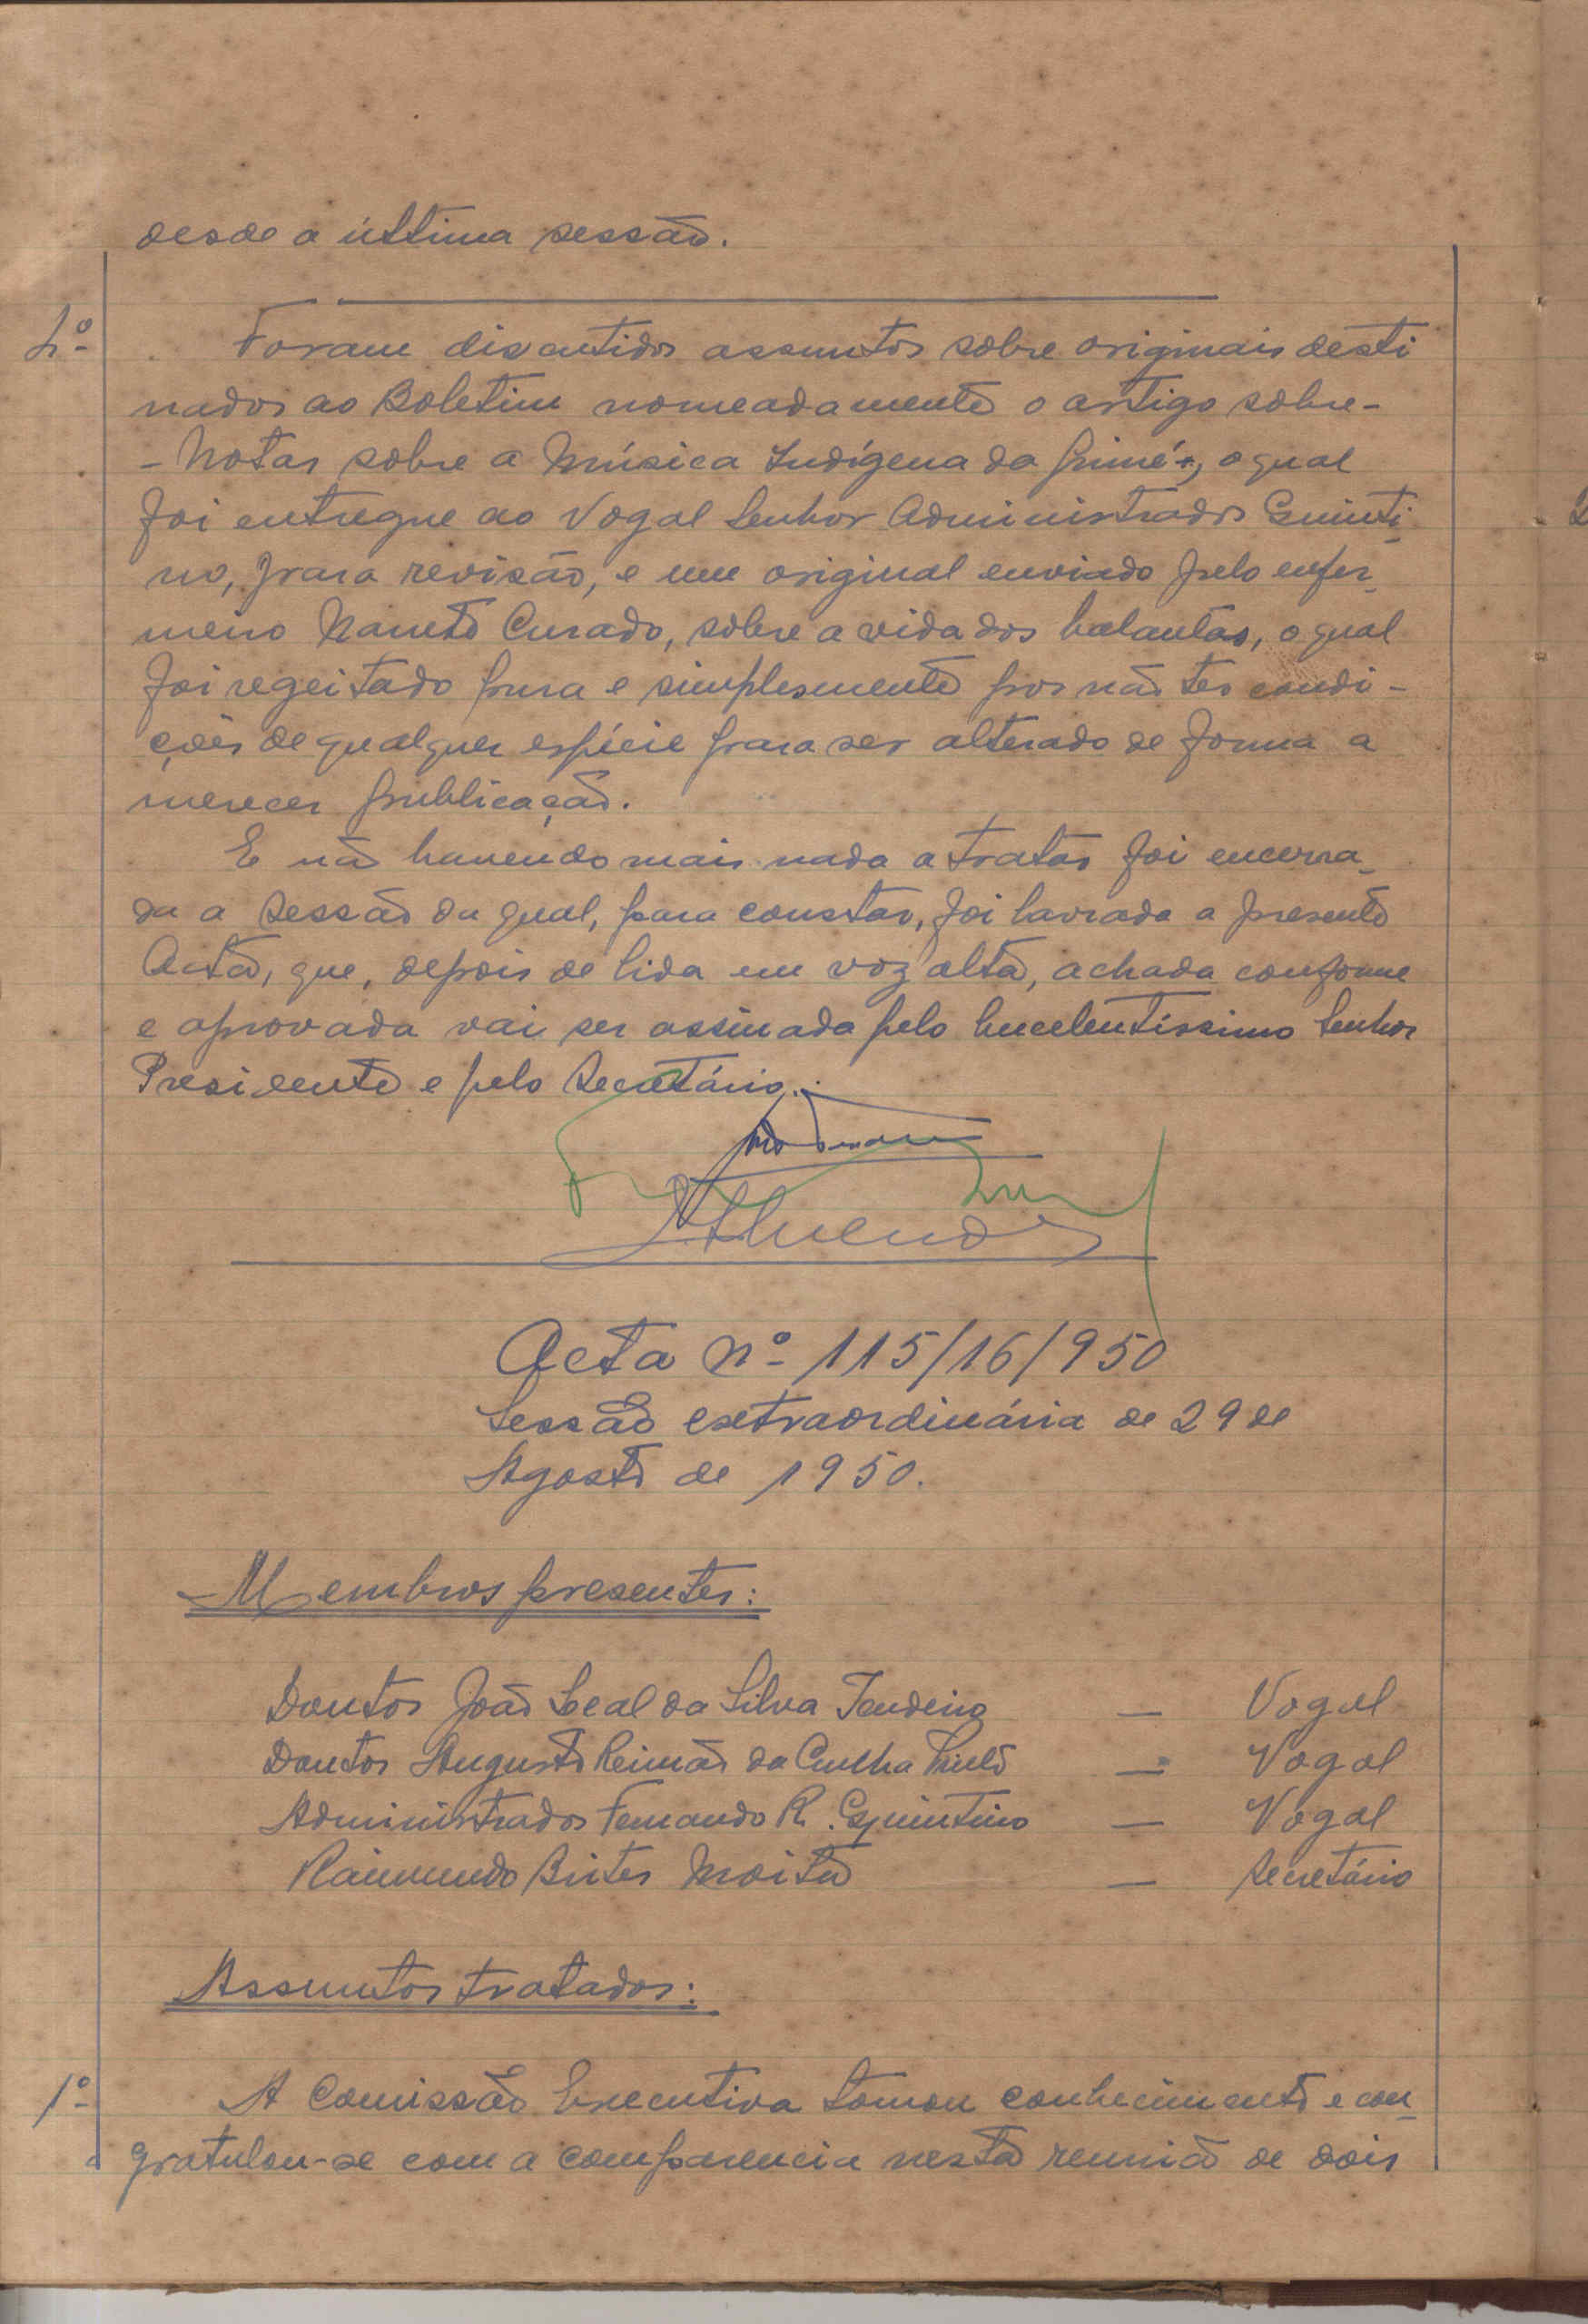 desde a última sessão.
2º Foram discutidos assuntos sobre originais desti
nados ao Boletim nomeadamente o artigo sobre-
- Notas sobre a Música Indígena da Guiné-, o qual
foi entregue ao Vogal Senhor Administrador Quinti-
no, para revisão, e um original enviado pelo enfer-
meiro Curado, sobre a vida dos balantas, o qual
foi regeitado pura e simplesmente por não ter condi-
ções de qualquer espécie para ser alterado de forma a
merecer publicação.
E não havendo mais nada a tratar foi encerra-
da a Sessão da qual, para constar, foi lavrada a presente
Acta, que, depois de lida em voz alta, achada conforme
e aprovada vai ser assinada pelo Excelentíssimo Senhor
Presidente e pelo Secretário.
Acta nº 115/16/950
Sessão extraordinária de 29 de
Agosto de 1950.
Membros presentes:
Doutor João Leal da Silva Tendeiro — Vogal
Doutor Augusto Reimão da Cunha Pinto — Vogal
Administrador Fernando R. Quintino — Vogal
Raimundo Brites Moita — Secretário
Assuntos tratados:
1º A Comissão Executiva tomou conhecimento e con-
gratulou-se com a comparencia nesta reunião de dois